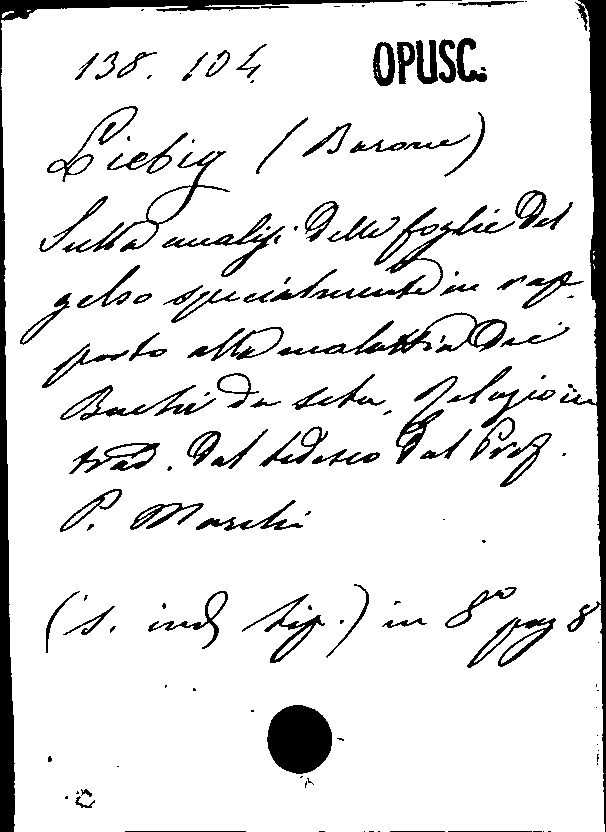 138. 104. OPUSC.
Liebig (Barone)
Sulla analisi delle foglie del
gelso specialmente in rap-
porto alla malattia dei
Bachi da seta, relazione
trad. dal tedesco dal Prof.
P. Marchi
(s. ind. tip.) in 8º pag 8